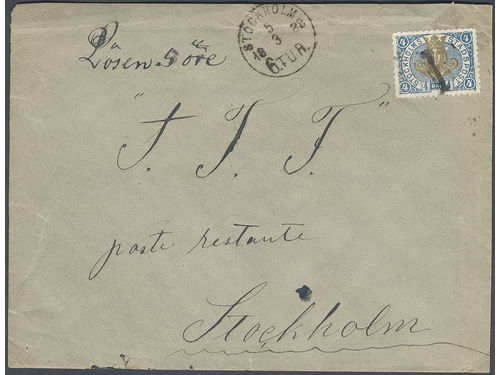 Lösen 5 öre
STOCKHOLM
5
18 3 88
6.TUR.
4 STOCKHOLMS STADSPOST 4
4 4
"J. J. J."
poste restante
Stockholm